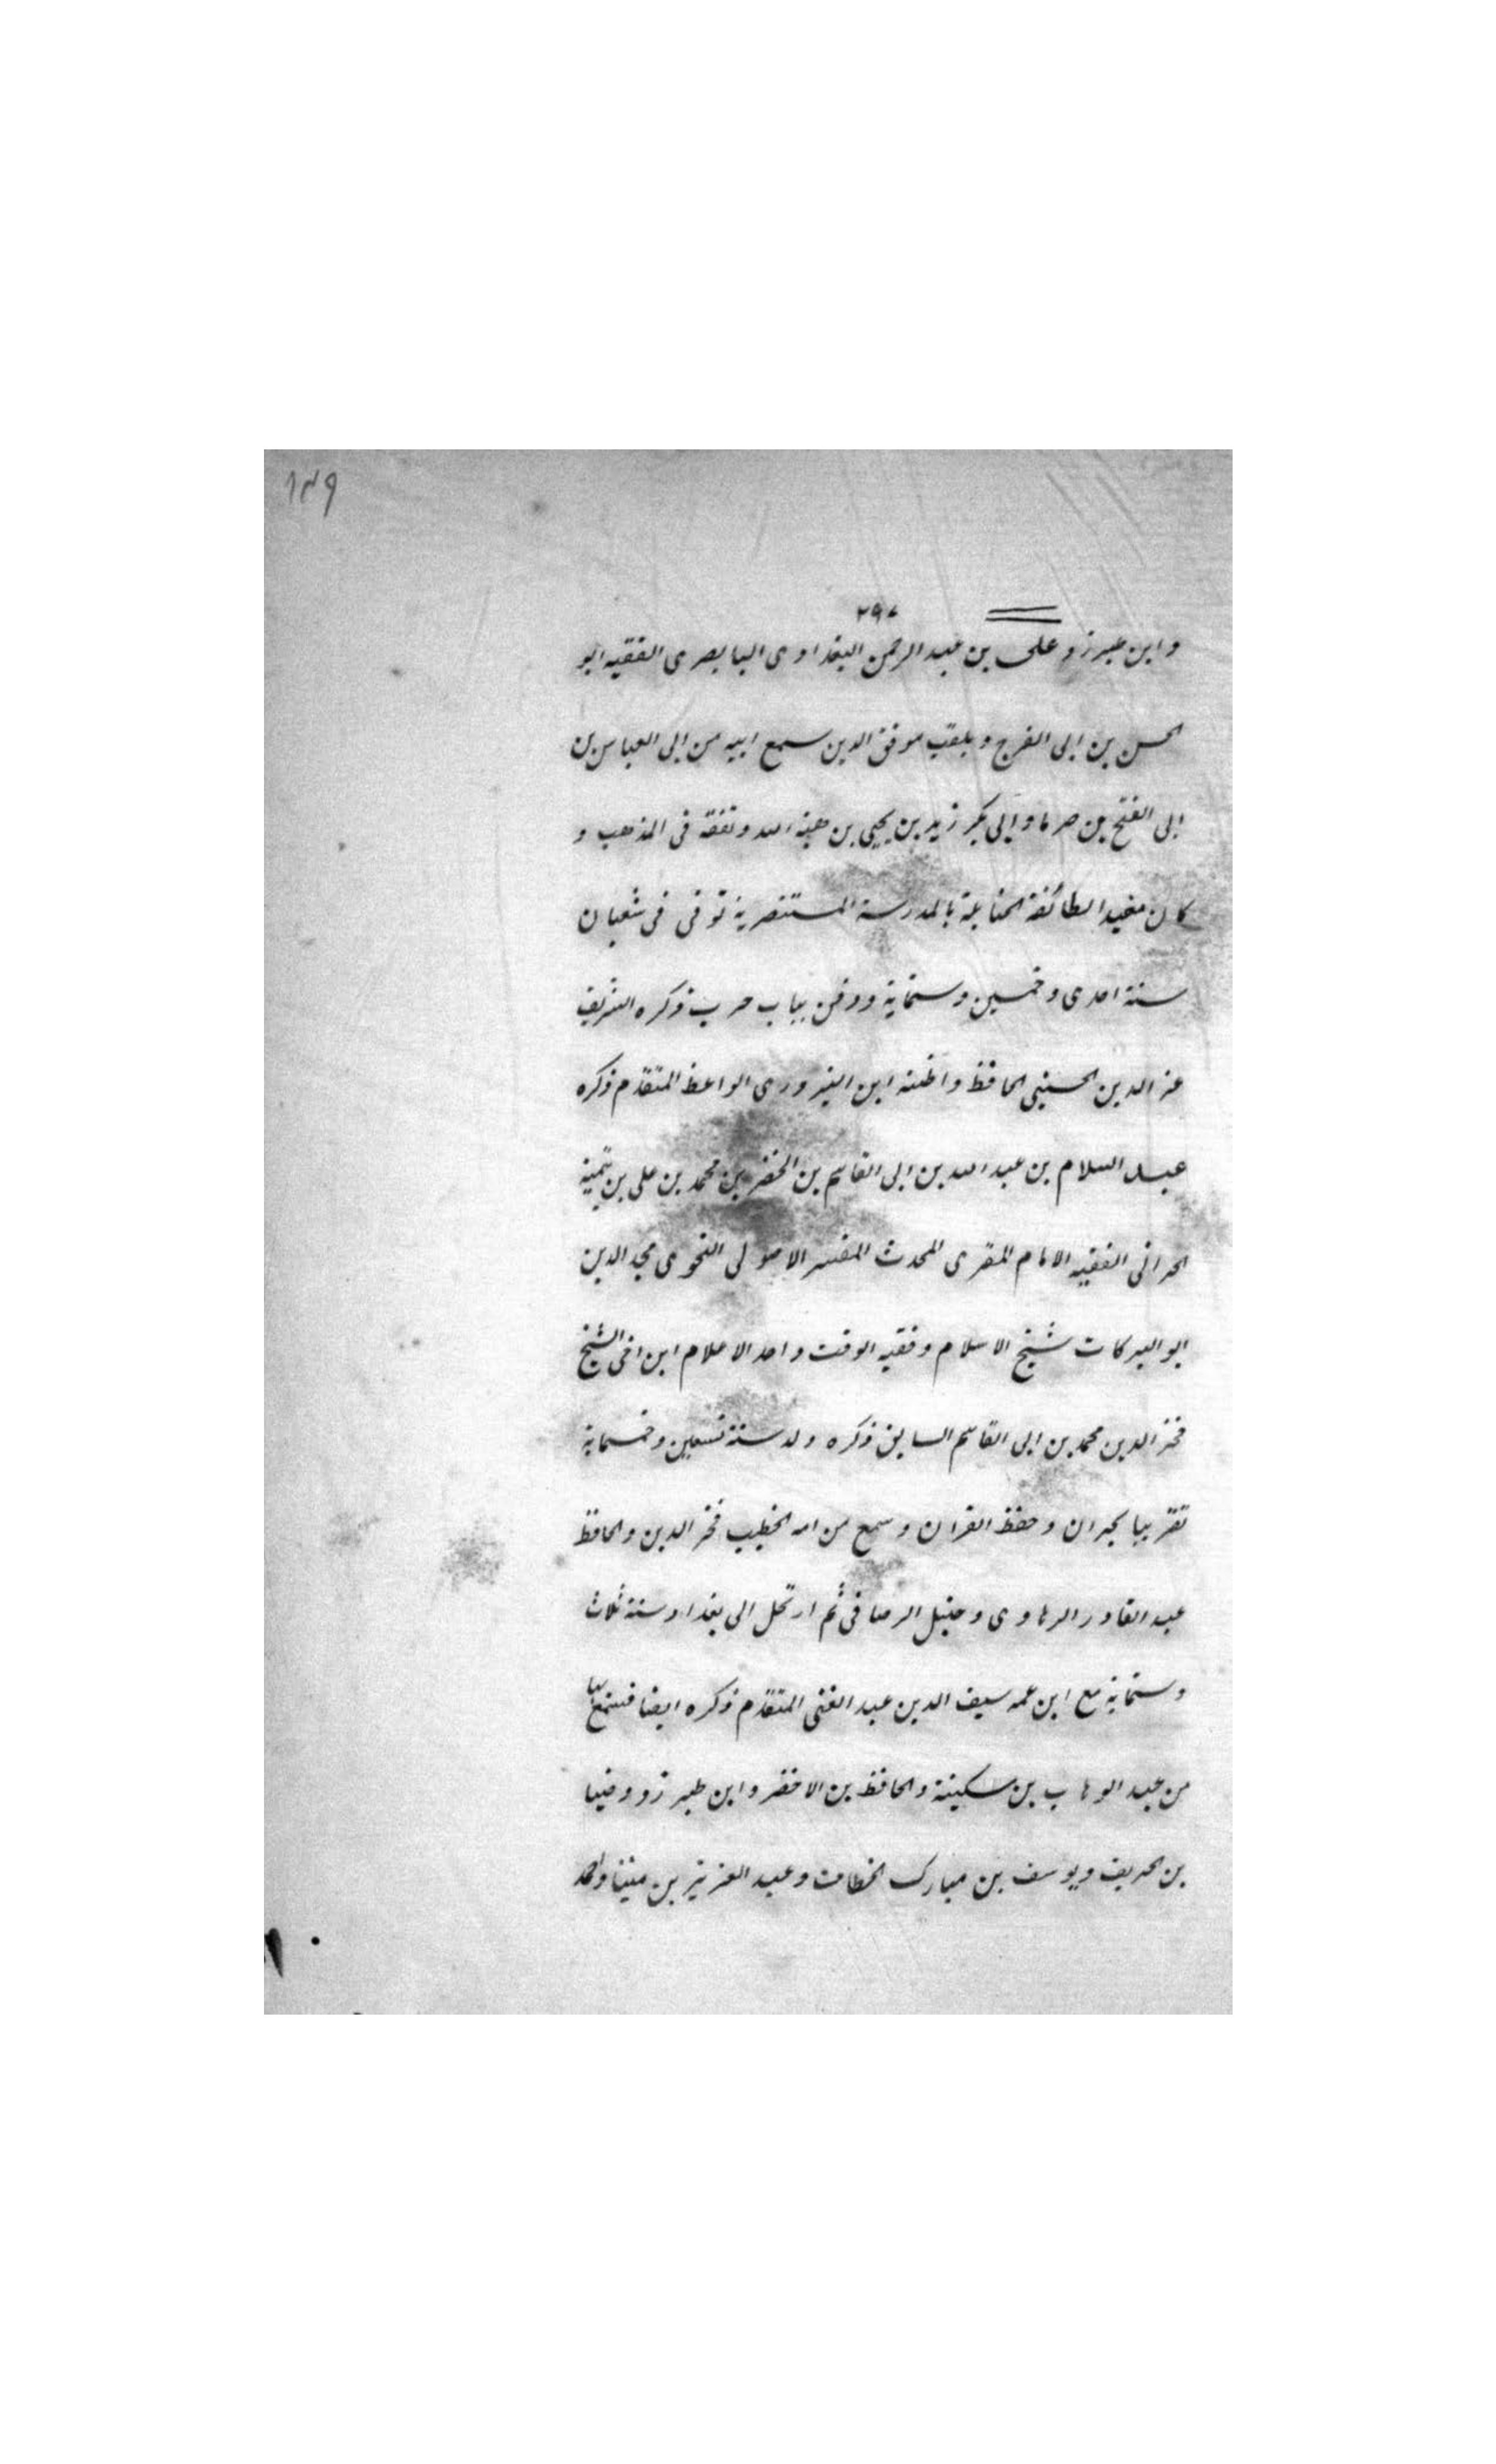 ١٤٩
٢٩٧
وابن طبرزد على بن عبد الرحمن البغدادى البابصرى الفقيه ابو
الحسن بن ابى الفرج ويلقب موفق الدين سمع ابيه من ابى العباس بن
ابى الفتح بن صرما وابى بكر زيد بن يحيى بن هبة الله وتفقه فى المذهب و
كان مفيد الطائفة الحنابلة بالمدرسة المستنصرية توفى فى شعبان
سنة احدى وخمسين وستماية ودفن بباب حرب ذكره الشريف
عز الدين الحسينى الحافظ واظنه ابن البزورى الواعظ المتقدم ذكره
عبد السلام بن عبد الله بن ابى القاسم بن الخضر بن محمد بن على بن تيمية
الحرانى الفقيه الامام المقرى المحدث المفسر الاصولى النحوى مجد الدين
ابو البركات شيخ الاسلام وفقيه الوقت واحد الاعلام ابن اخى الشيخ
فخر الدين محمد بن ابى القاسم السابق ذكره ولد سنة تسعين وخمسماية
تقريبا بحران وحفظ القران وسمع من امه الخطيب فخر الدين والحافظ
عبد القادر الرهاوى وحنبل الرصافى ثم ارتحل الى بغداد سنة ثلاث
وستماية مع ابن عمه سيف الدين عبد الغنى المتقدم ذكره ايضا فسمع بها
من عبد الوهاب بن سكينة والحافظ بن الاخضر وابن طبرزد وضيا
بن الخريف ويوسف بن مبارك الخطاف وعبد العزيز بن منينا واحمد